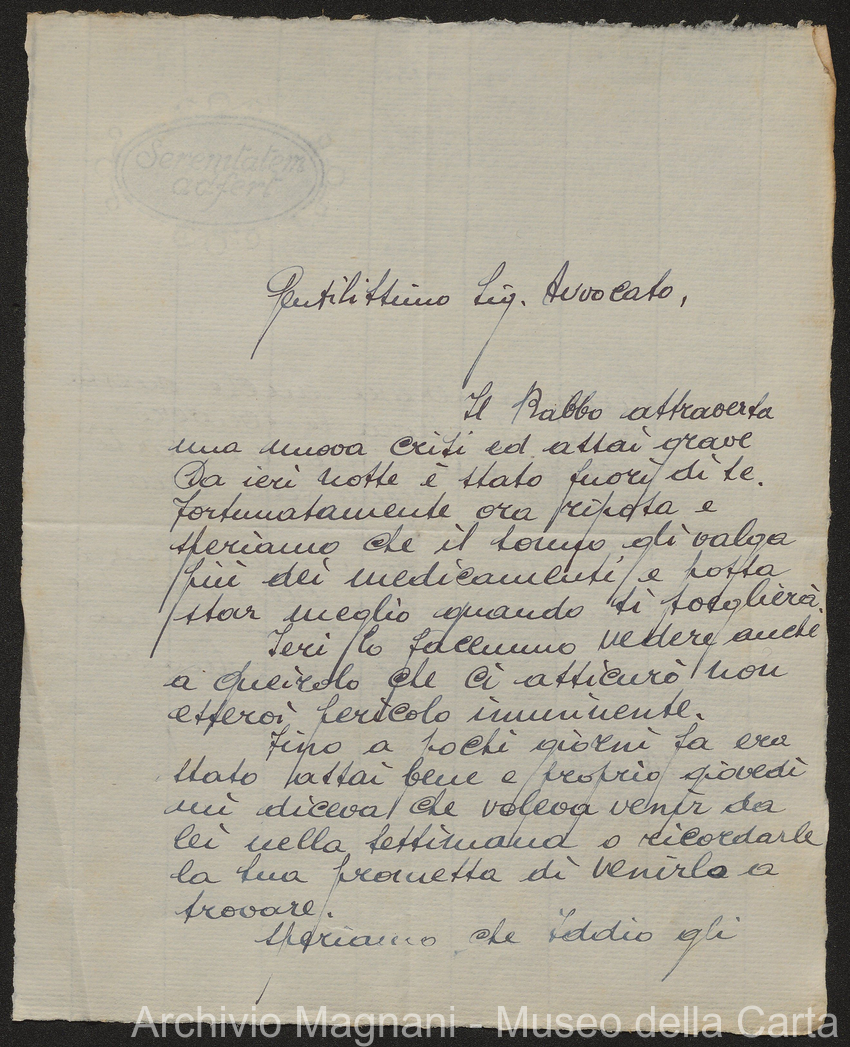 Serenitatem
adfert
Gentilissimo Sig. Avvocato,
Il Babbo attraversa
una nuova crisi ed assai grave
Da ieri notte è stato fuori di se.
Fortunatamente ora riposa e
speriamo che il sonno gli valga
più dei medicamenti e possa
star meglio quando si sveglierà.
Ieri lo facemmo vedere anche
a Queirolo che ci assicurò non
esservi pericolo imminente.
Fino a pochi giorni fa era
stato assai bene e proprio giovedì
mi diceva che voleva venir da
lei nella settimana o ricordarle
la sua promessa di venirlo a
trovare.
Speriamo che Iddio gli
Archivio Magnani - Museo della Carta